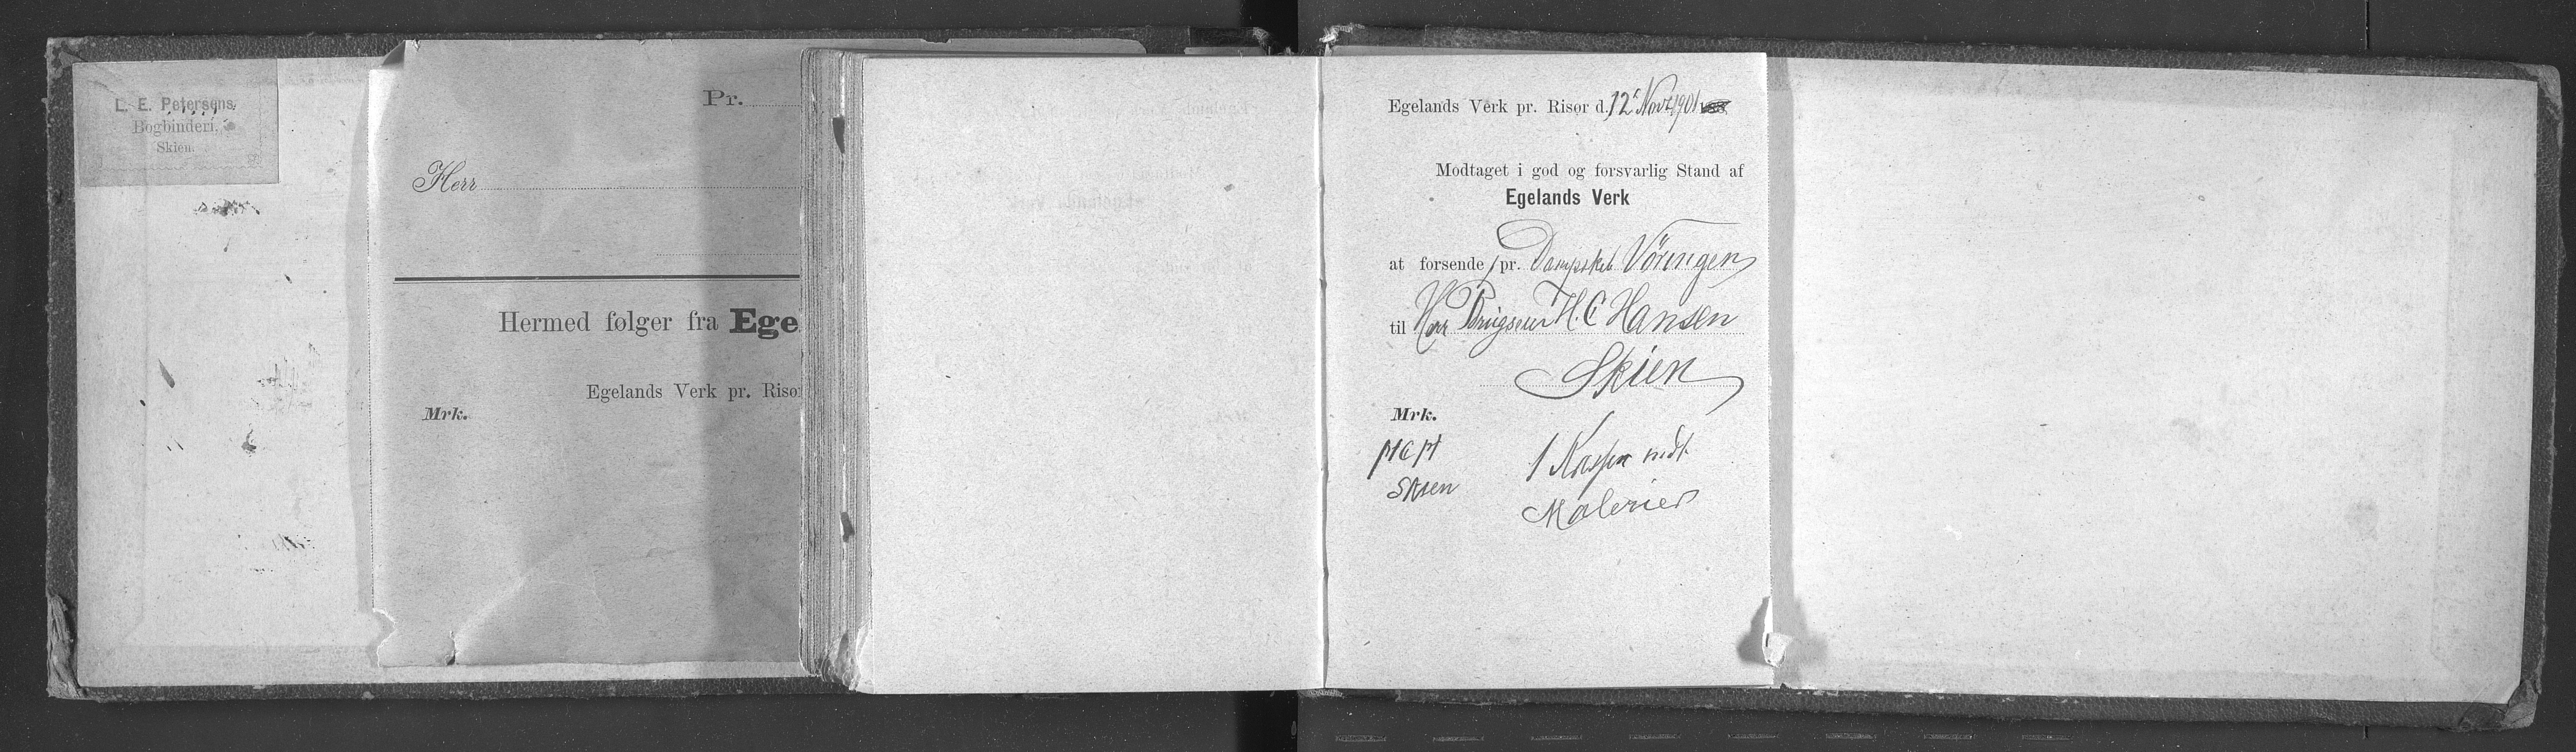 L. E. Petersens
Bogbinderi.
Skien.
Pr.
Herr
Hermed følger fra Ege
Egelands Verk pr. Risø
Mrk.
Egelands Verk pr. Risør d. 12t Novr 1901
Modtaget i god og forsvarlig Stand af
Egelands Verk
at forsende pr. Dampskib Vöringen
til Herr H. C Hansen
Skien
Mrk.
HCH
Skien
1 Kasse mdt
Malerier